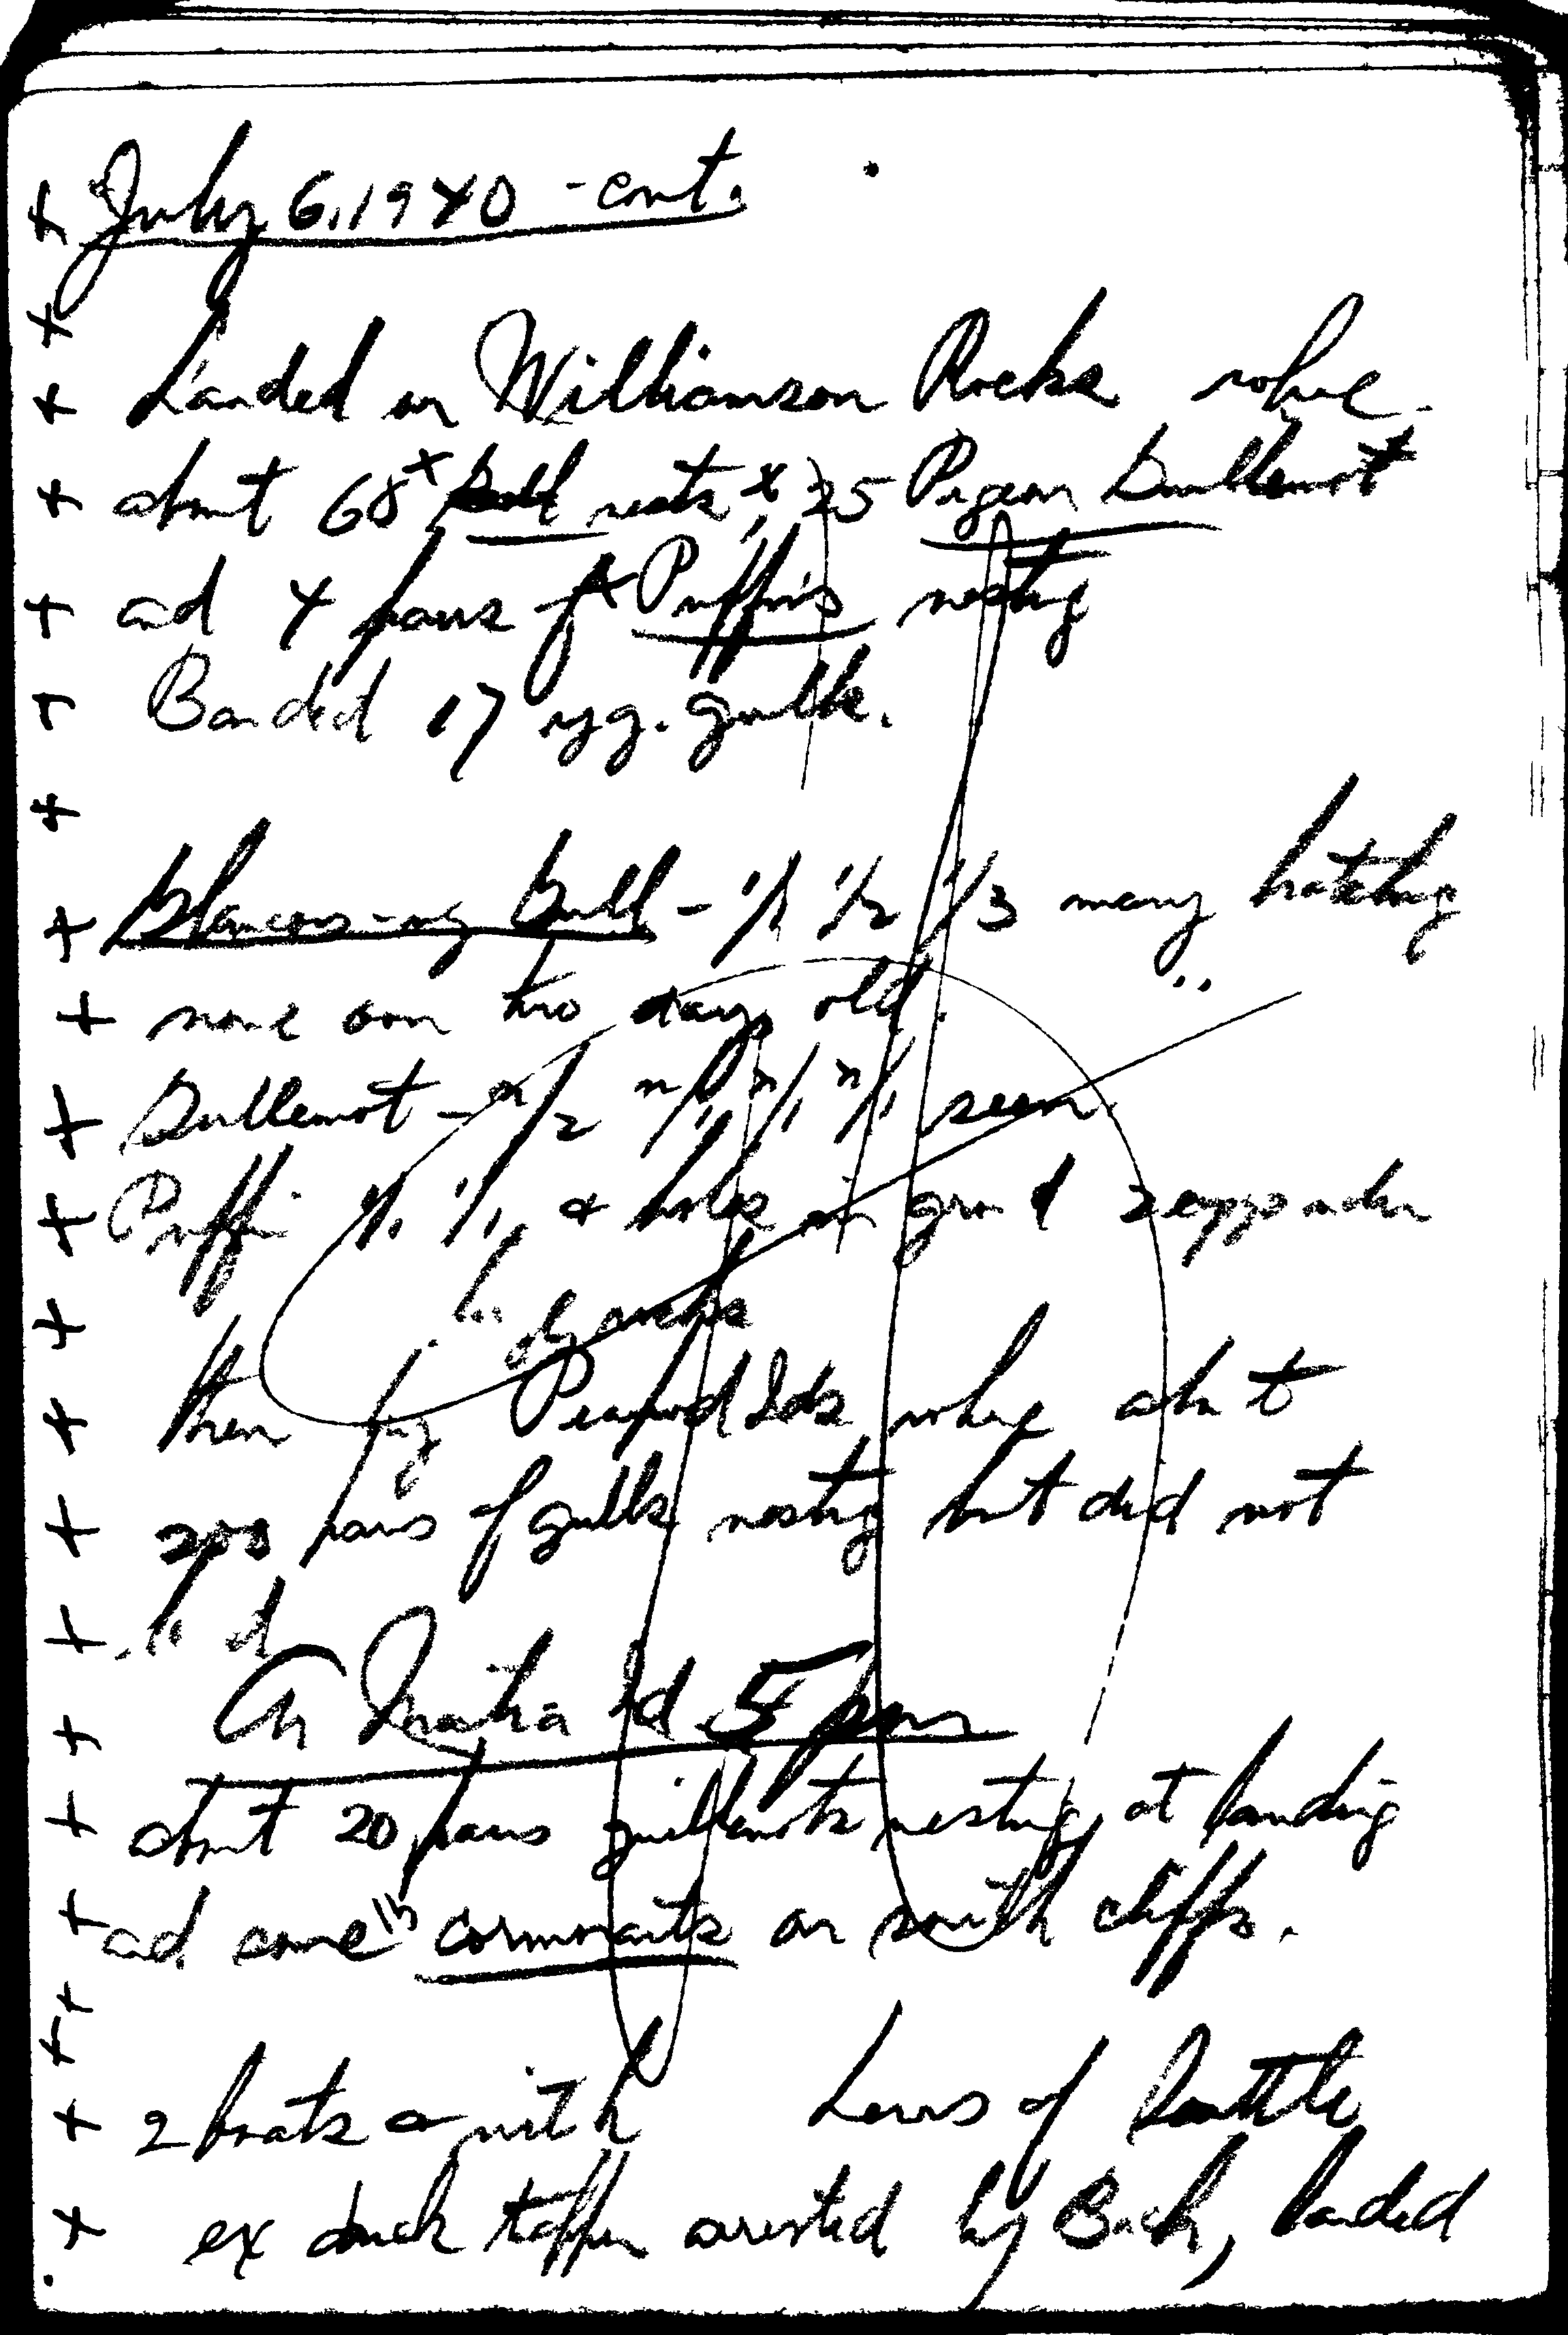 July 6, 1940 - cont.
Landed on Williamson Rocks where
about 60 Gull nests, 25 Pigeon Guillemot
and 4 pairs of Puffins nesting
Banded 17 yg. gulls.
Glaucous-wg Gull - 1/1 1/2 1/3 many hatching
none over two days old.
Guillemot - n/2 n/1 n/1 n/1 seen.
Puffin 1/1 1/1, & holes in ground 2 eggs under
rocks
then by Peapod Ids where about
200 pairs of gulls nesting but did not
land
On Matia Id 5 pm
about 20 pairs guillemots nesting at landing
and some cormorants on south cliffs.
2 boats with Lewis of Seattle
ex duck arrested by Bach, landed